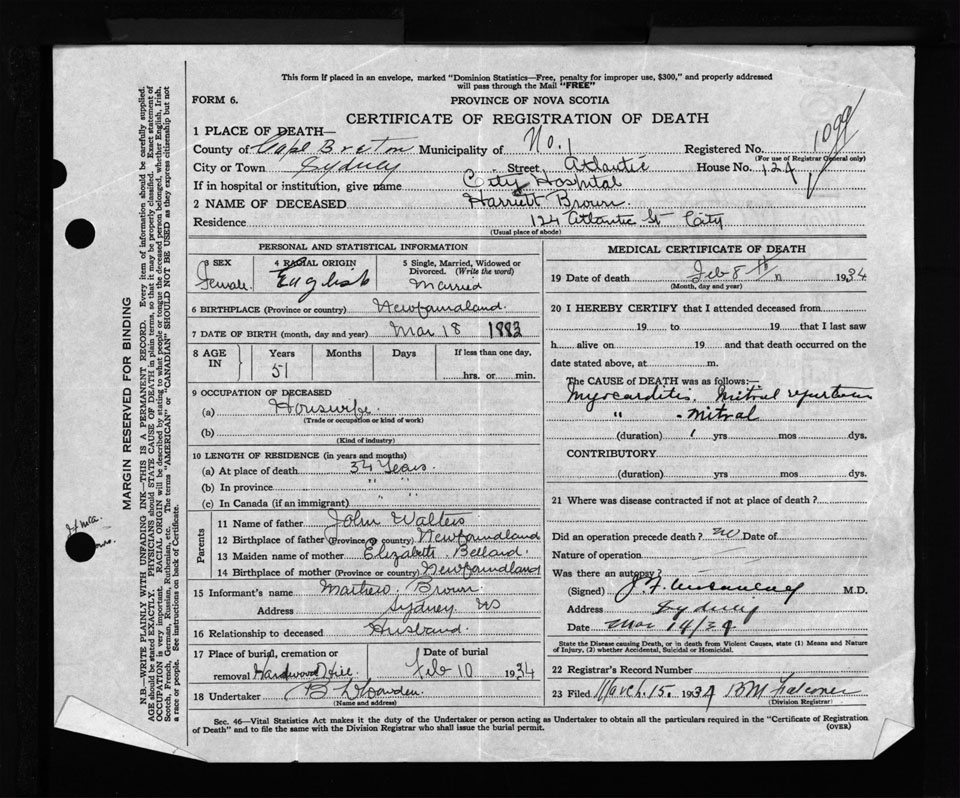 This form if placed in an envelope, marked "Dominion Statistics—Free, penalty for improper use, $300," and properly addressed
will pass through the Mail "FREE"
FORM 6.
PROVINCE OF NOVA SCOTIA
CERTIFICATE OF REGISTRATION OF DEATH
1099
1 PLACE OF DEATH—
County of Cape Breton Municipality of No. 1 Registered No.
(For use of Registrar General only)
City or Town Sydney Street Atlantic House No. 124
If in hospital or institution, give name City Hospital
2 NAME OF DECEASED Harriett Brown
Residence 124 Atlantic St City
(Usual place of abode)
PERSONAL AND STATISTICAL INFORMATION
3 SEX
Female
4 RACIAL ORIGIN
English
5 Single, Married, Widowed or
Divorced. (Write the word)
Married
6 BIRTHPLACE (Province or country) Newfoundland.
7 DATE OF BIRTH (month, day and year) Mar 18 1883
8 AGE IN
Years Months Days If less than one day,
51
hrs. or min.
9 OCCUPATION OF DECEASED
(a) Housewife
(Trade or occupation or kind of work)
(b)
(Kind of industry)
10 LENGTH OF RESIDENCE (in years and months)
(a) At place of death 34 Years.
(b) In province " "
(c) In Canada (if an immigrant) " "
Parents
11 Name of father John Walters
12 Birthplace of father (Province or country) Newfoundland
13 Maiden name of mother Elizabeth
14 Birthplace of mother (Province or country) Newfoundland
15 Informant's name Mathew Brown
Address Sydney NS
16 Relationship to deceased Husband.
17 Place of burial, cremation or Date of burial
removal Hardwood Hill Feb 10 1934
18 Undertaker
(Name and address)
MEDICAL CERTIFICATE OF DEATH
19 Date of death Feb 8 th 1934
(Month, day and year)
20 I HEREBY CERTIFY that I attended deceased from
19 to 19 that I last saw
h alive on 19 and that death occurred on the
date stated above, at m.
The CAUSE of DEATH was as follows:—
Myocarditis. Mitral
" - Mitral
(duration) yrs mos dys.
CONTRIBUTORY
(duration) yrs. mos. dys.
21 Where was disease contracted if not at place of death?
Did an operation precede death? no Date of
Nature of operation
Was there an autopsy?
(Signed) J. F. M.D.
Address Sydney
Date Mar 14/34
State the Disease causing Death, or in death from Violent Causes, state (1) Means and Nature
of Injury, (2) whether Accidental, Suicidal or Homicidal.
22 Registrar's Record Number
23 Filed March 15. 1934 B M Falconer
(Division Registrar)
Sec. 46—Vital Statistics Act makes it the duty of the Undertaker or person acting as Undertaker to obtain all the particulars required in the "Certificate of Registration
of Death" and to file the same with the Division Registrar who shall issue the burial permit.
(OVER)
MARGIN RESERVED FOR BINDING
N.B.—WRITE PLAINLY WITH UNFADING INK—THIS IS A PERMANENT RECORD. Every item of information should be carefully supplied.
AGE should be stated EXACTLY. PHYSICIANS should STATE CAUSE OF DEATH in plain terms, so that it may be properly classified. Exact statement of
OCCUPATION is very important. RACIAL ORIGIN will be described by stating to what people or tongue the deceased person belonged, whether English, Irish,
Scotch, French, German, Russian, Ruthenian, etc. The terms "AMERICAN" or "CANADIAN" SHOULD NOT BE USED as they express citizenship but not
a race or people. See instructions on back of Certificate.